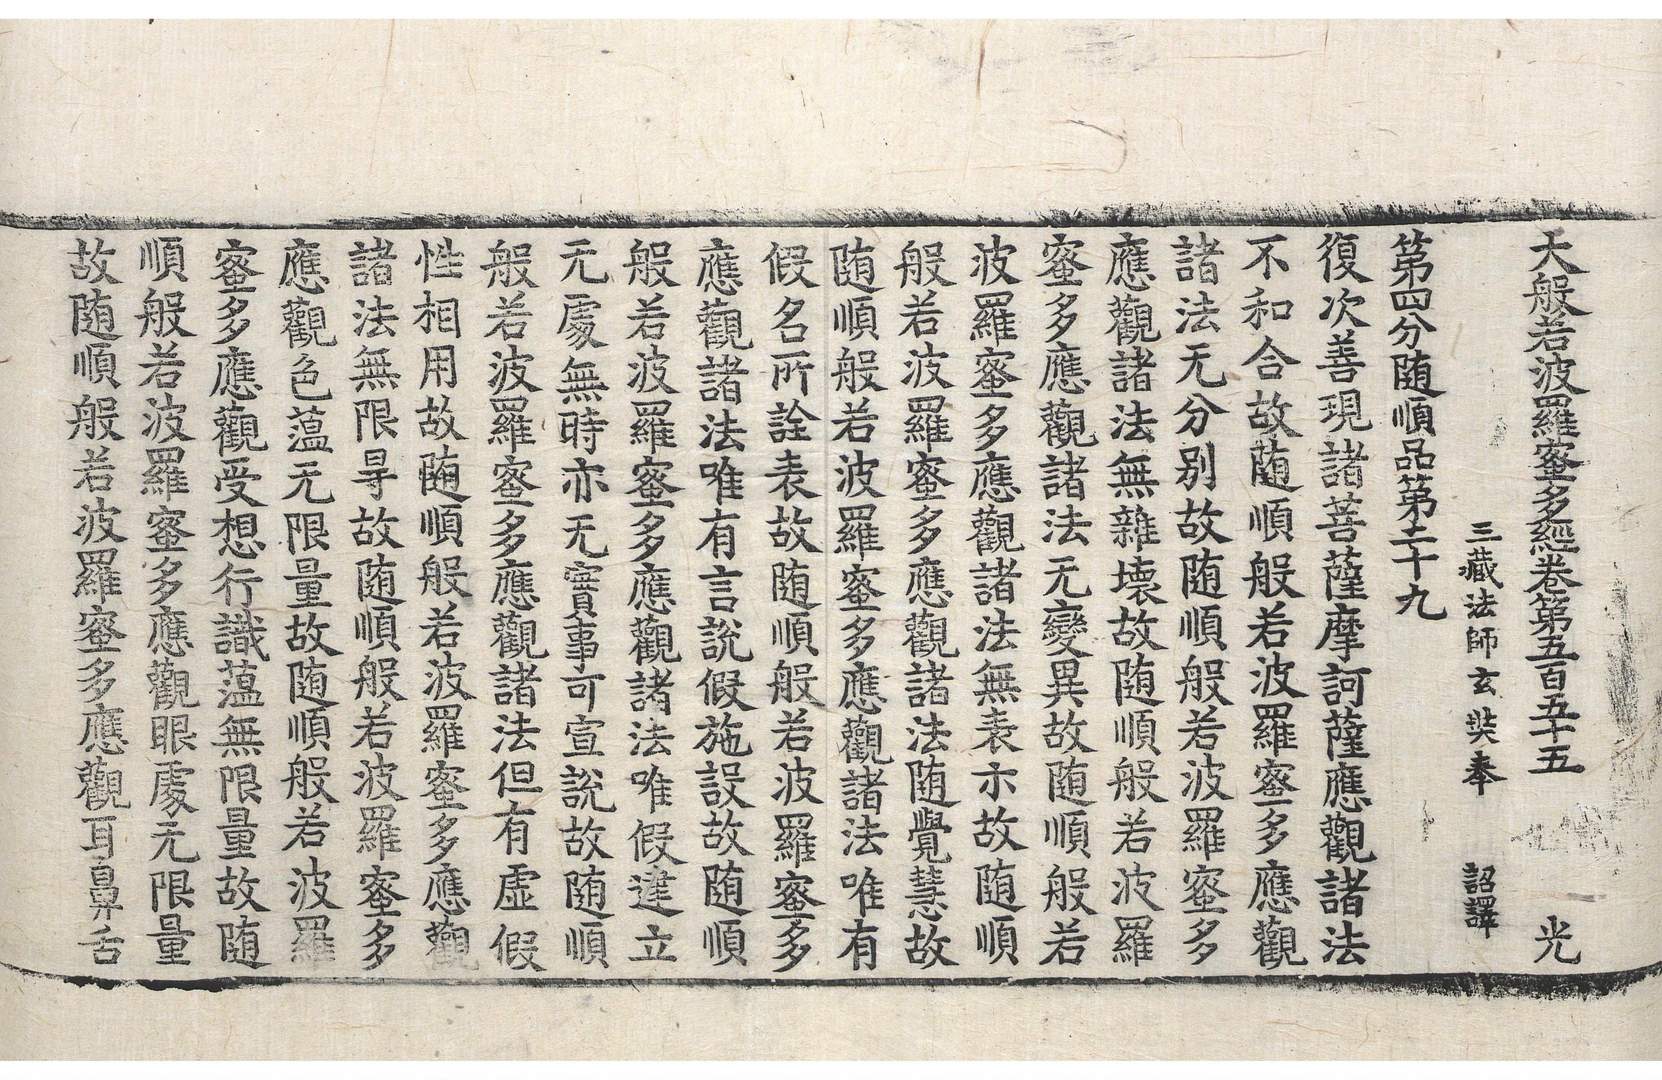 大般若波羅蜜多經卷第五百五十五 光
三藏法師玄奘奉 詔譯
第四分随順品第二十九
復次善現諸菩薩摩訶薩應觀諸法
不和合故随順般若波羅蜜多應觀
諸法无分别故随順般若波羅蜜多
應觀諸法無雜壞故随順般若波羅
蜜多應觀諸法无變異故随順般若
波羅蜜多應觀諸法無表示故随順
般若波羅蜜多應觀諸法随覺慧故
随順般若波羅蜜多應觀諸法唯有
假名所詮表故随順般若波羅蜜多
應觀諸法唯有言說假施設故随順
般若波羅蜜多應觀諸法唯假建立
无處無時亦无實事可宣說故随順
般若波羅蜜多應觀諸法但有虛假
性相用故随順般若波羅蜜多應觀
諸法無限㝵故随順般若波羅蜜多
應觀色薀无限量故随順般若波羅
蜜多應觀受想行識薀無限量故随
順般若波羅蜜多應觀眼處无限量
故随順般若波羅蜜多應觀耳鼻舌